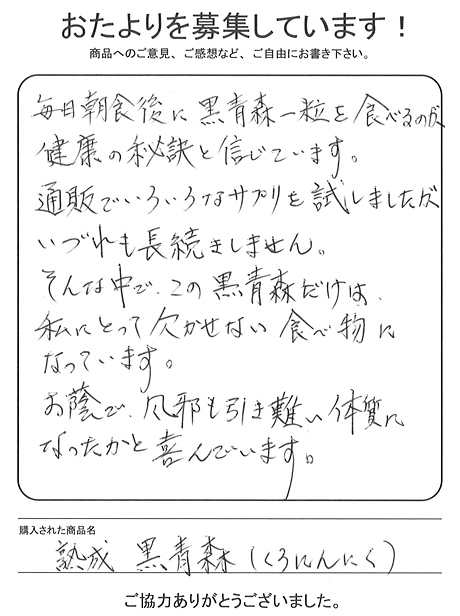 おたよりを募集しています！
商品へのご意見、ご感想など、ご自由にお書き下さい。
毎日朝食後に黒青森一粒を食べるのが、
健康の秘訣と信じています。
通販でいろいろなサプリを試しましたが
いづれも長続きしません。
そんな中で、この黒青森だけは、
私にとって欠かせない食べ物に
なっています。
お蔭で、風邪も引き難い体質に
なったかと喜んでいます。
購入された商品名
熟成 黒青森（くろにんにく）
ご協力ありがとうございました。